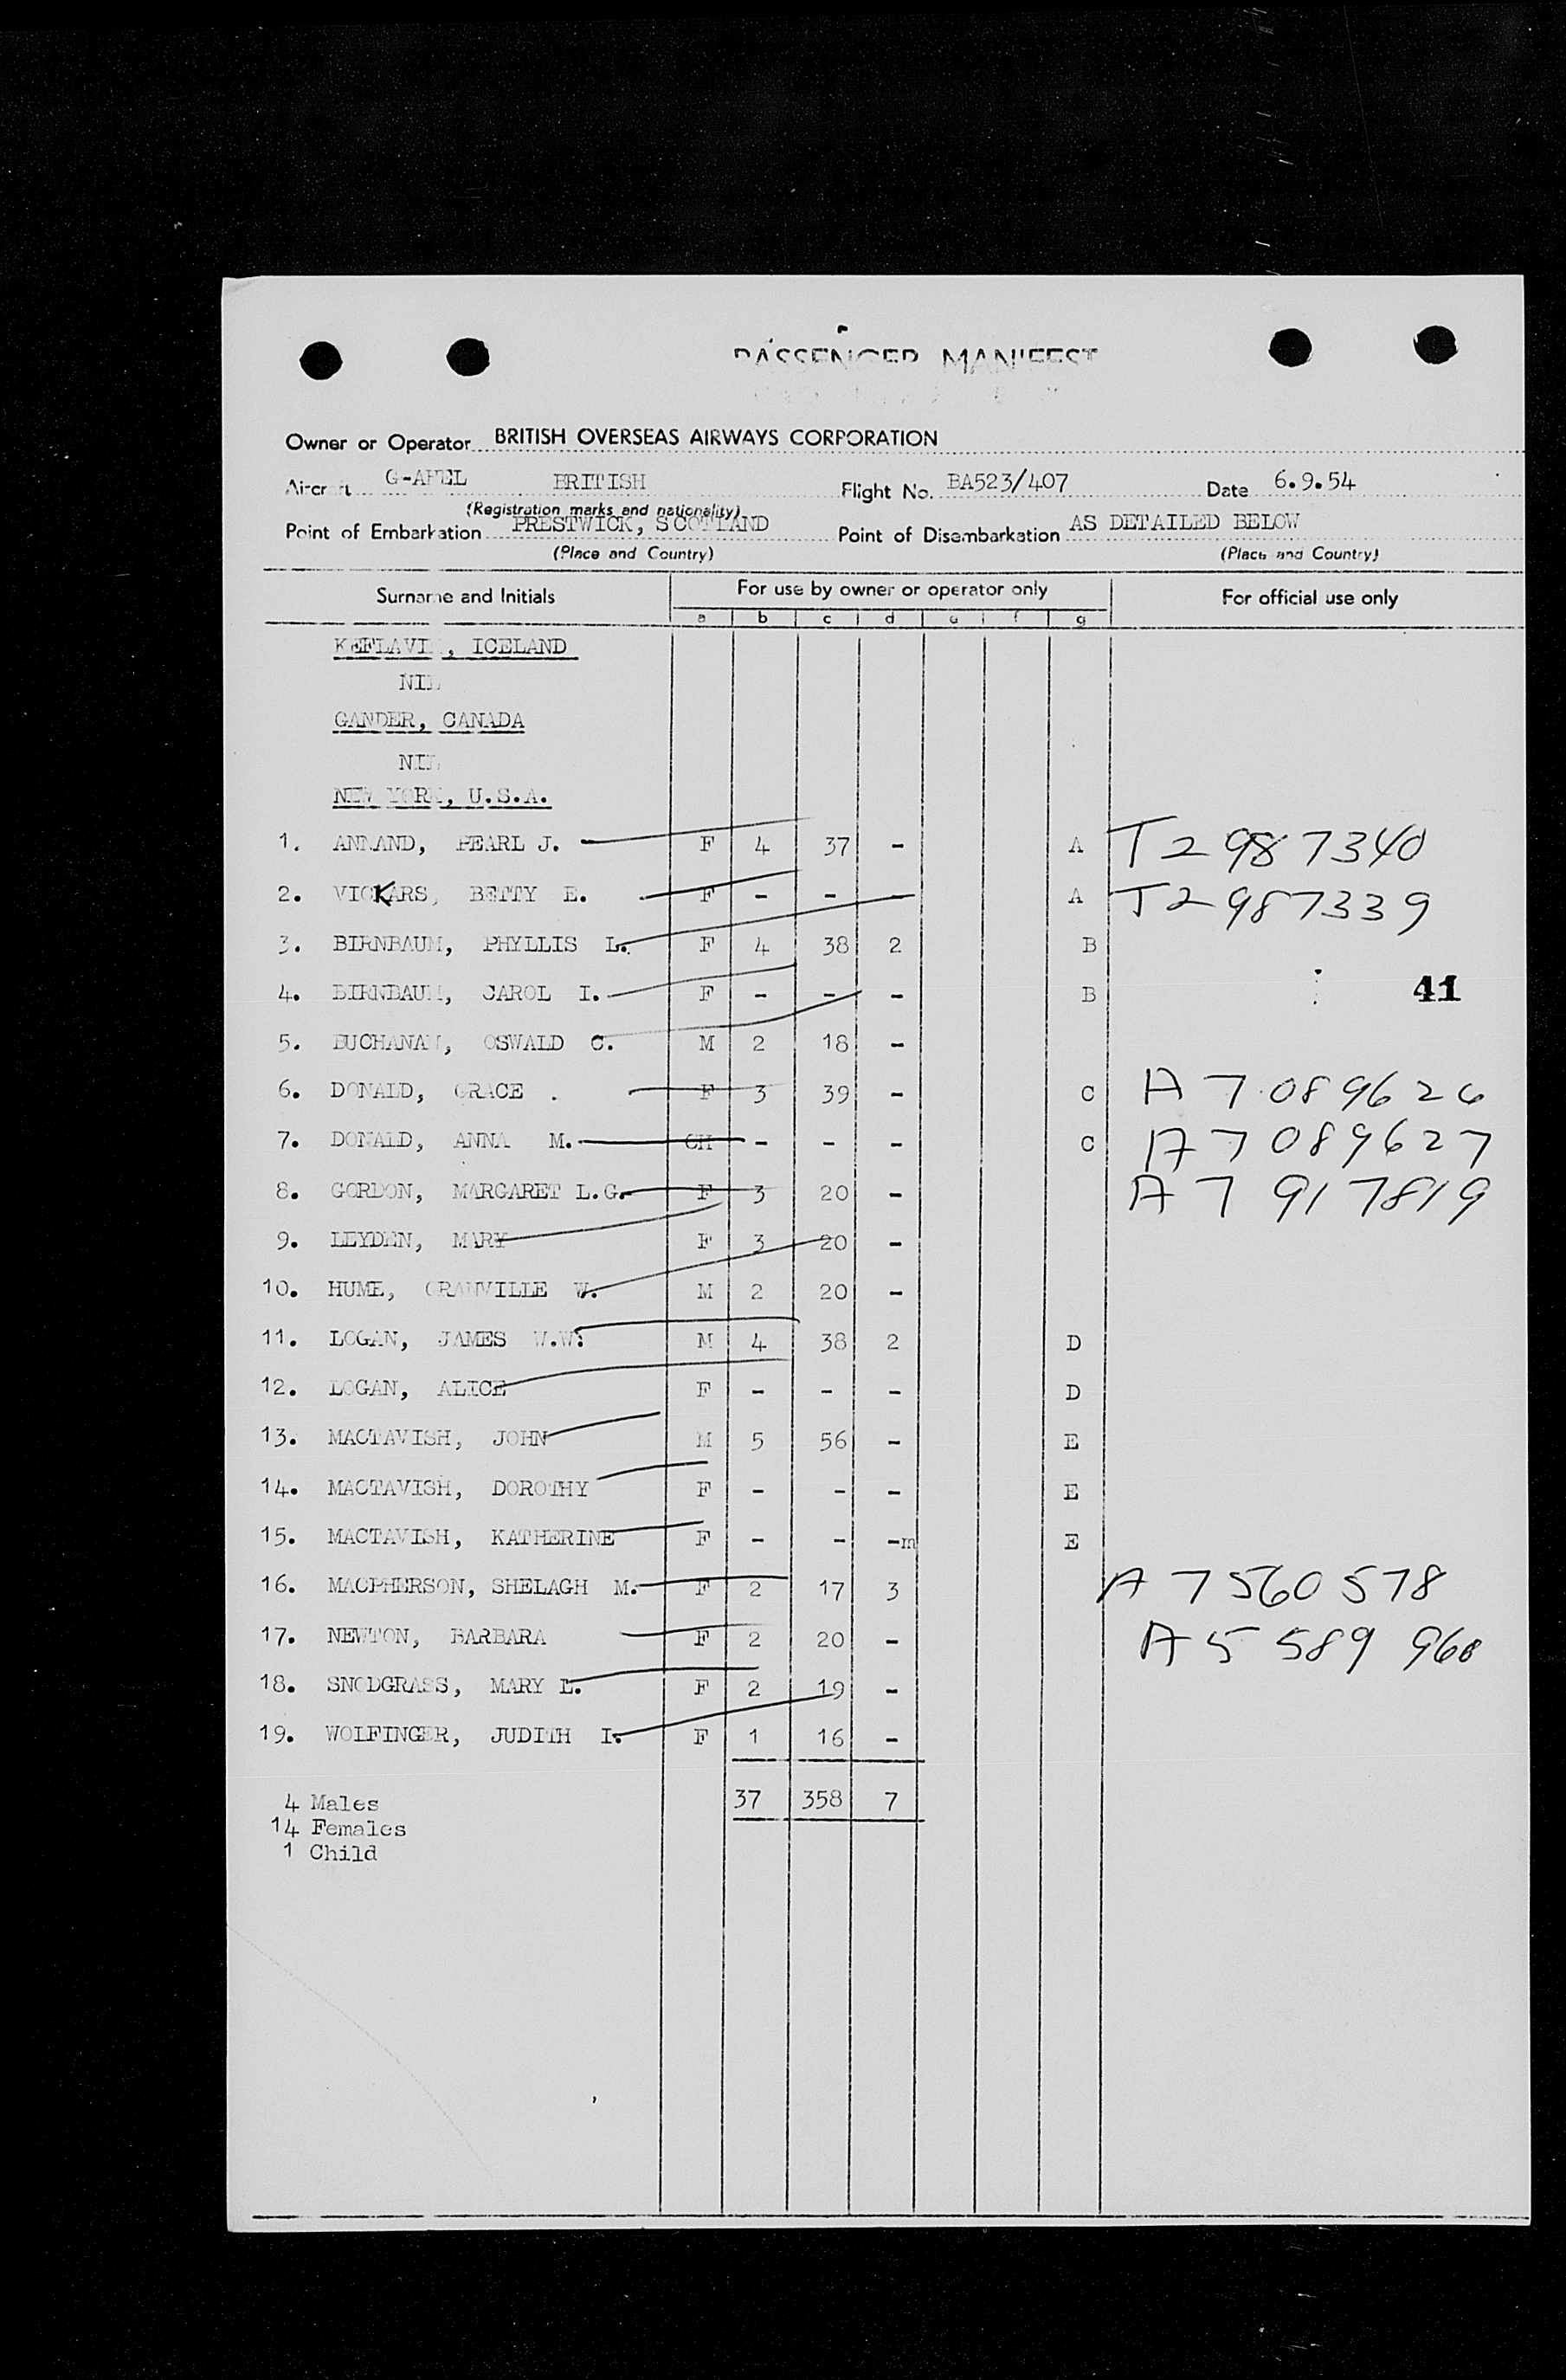 PASSENGER MANIFEST
Owner or Operator BRITISH OVERSEAS AIRWAYS CORPORATION
Aircraft BRITISH Flight No. BA523/407 Date 6.9.54
(Registration marks and nationality)
Point of Embarkation PRESTWICK, SCOTLAND Point of Disembarkation AS DETAILED BELOW
(Place and Country) (Place and Country)
Surname and Initials For use by owner or operator only For official use only
a b c d e f g
KEFLAVIK, ICELAND
NIL
GANDER, CANADA
NIL
NEW YORK, U.S.A.
1. ANNAND, PEARL J. F 4 37 - A T2 987340
2. VICKARS, BETTY E. F - - - A T2 987339
3. BIRNBAUM, PHYLLIS L. F 4 38 2 B
4. BIRNBAUM, CAROL I. F - - - B 41
5. BUCHANAN, OSWALD C. M 2 18 -
6. DONALD, GRACE . F 3 39 - C A 7 089626
7. DONALD, ANNA M. CH - - - C A 7 089627
8. GORDON, MARGARET L.G. F 3 20 - A 7 917819
9. LEYDEN, MARY F 3 20 -
10. HUME, GRANVILLE W. M 2 20 -
11. LOGAN, JAMES W.W. M 4 38 2 D
12. LOGAN, ALICE F - - - D
13. MACTAVISH, JOHN M 5 56 - E
14. MACTAVISH, DOROTHY F - - - E
15. MACTAVISH, KATHERINE F - - -m E
16. MACPHERSON, SHELAGH M. F 2 17 3 A 7560 578
17. NEWTON, BARBARA F 2 20 - A5 589 960
18. SNODGRASS, MARY L. F 2 19 -
19. WOLFINGER, JUDITH I. F 1 16 -
37 358 7
4 Males
14 Females
1 Child